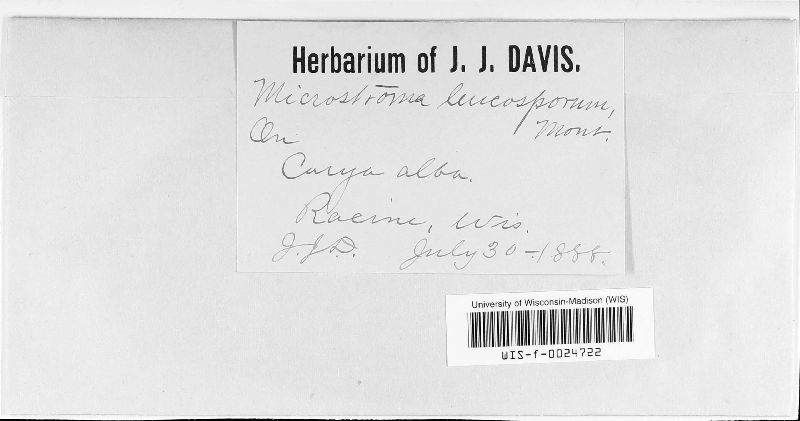 Herbarium of J. J. DAVIS.
Microstroma leucosporum,
Mont.
On
Carya alba.
Racine, Wis.
J.J.D. July 30-1888.
University of Wisconsin-Madison (WIS)
WIS-f-0024722